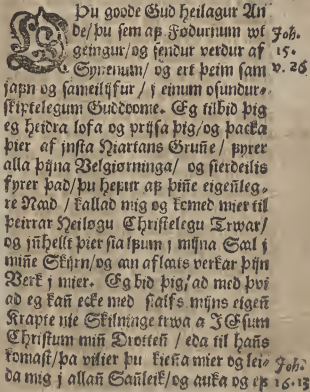 Þu goode Gud Heilagur An
de/þu sem af Fødurnum wt Joh.
geingur/og sendur verdur af 15.
Synenum/ og ert þeim sam v. 26
jafn og sameilijfur/ j einum osundur-
skiptelegum Guddoome. Eg tilbid þig
eg heidra lofa og prijsa þig/og þacka
þier af jnsta Hiartans Gruñe/ fyrer
alla þijna Velgiørninga/ og sierdeilis
fyrer þad/þu hefur af þiñe eigeñleg-
re Naad/ kallad mig og komed mier til
þeirrar Heiløgu Christelegu Trwar/
og jñhellt þier sialfum j mijna Sæl j
miñe Skijrn/og an aflaats verkar þijn
Verk j mier. Eg bid þig/ad med þvi
ad eg kañ ecke med sialfs mijns eigeñ
Krapte nie Skilninge trwa a JEsum
Christum miñ Drotteñ/ eda til hans
komast/þa vilier þu kieña mier og lei- Joh.
da mig j allañ Sañleik/og auka og ef 16.13